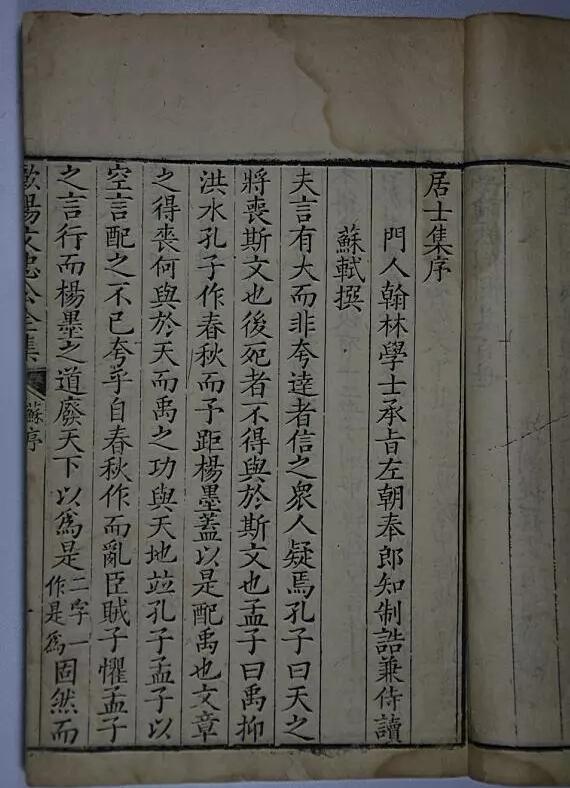 居士集序
門人翰林學士承旨左朝奉郎知制誥兼侍讀
蘇軾撰
夫言有大而非夸達者信之衆人疑焉孔子曰天之
將喪斯文也後死者不得與於斯文也孟子曰禹抑
洪水孔子作春秋而予距楊墨蓋以是配禹也文章
之得喪何與於天而禹之功與天地竝孔子孟子以
空言配之不已夸乎自春秋作而亂臣賊子懼孟子
之言行而楊墨之道廢天下以爲是二字一作是爲固然而
歐陽文忠公全集 蘇序